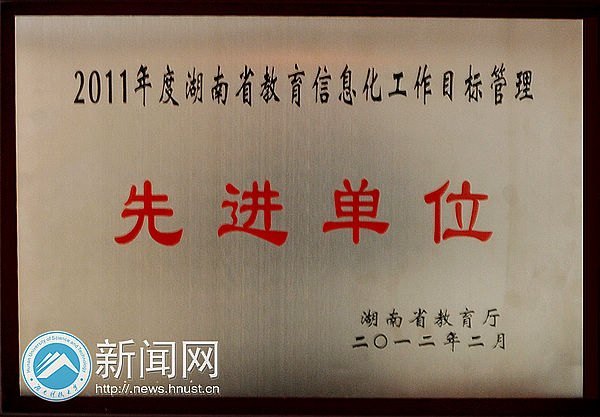 2011年度湖南省教育信息化工作目标管理
先进单位
湖南省教育厅
二〇一二年二月
新闻网
http://news.hnust.cn
Hunan University of Science and Technology
湖南科技大学